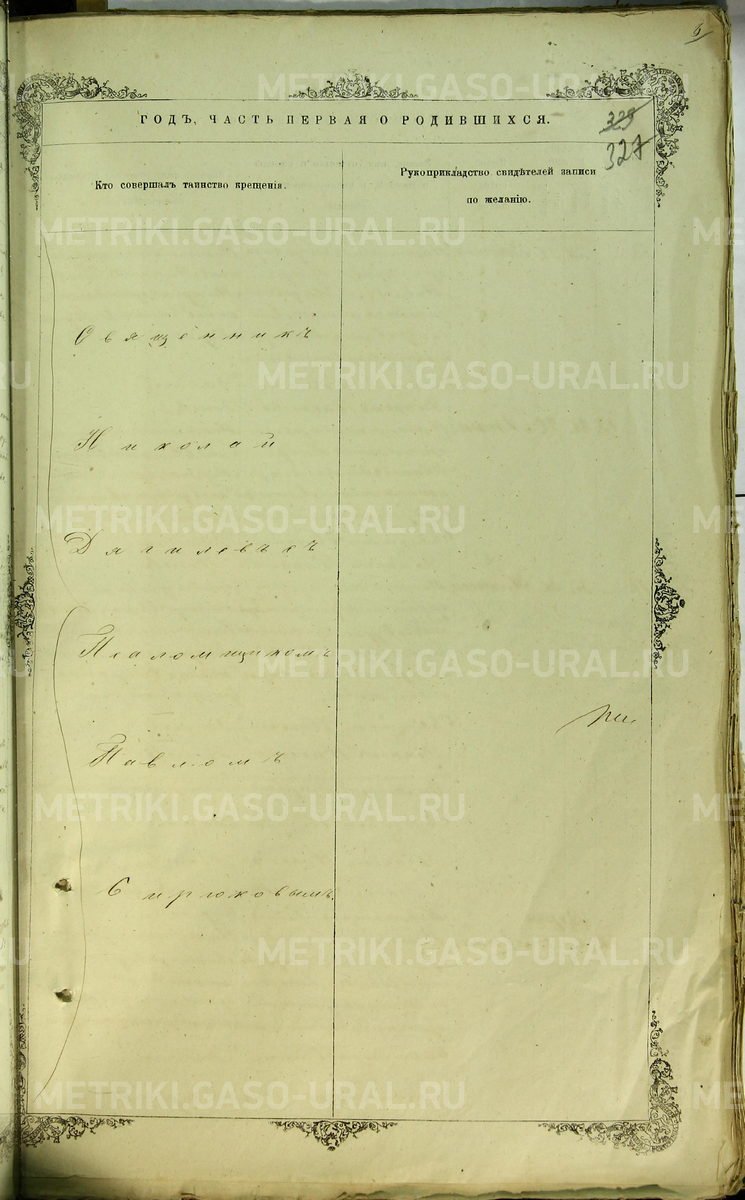 6
ГОДЪ, ЧАСТЬ ПЕРВАЯ О РОДИВШИХСЯ.
329
327
Кто совершалъ таинство крещенія.
Рукоприкладство свидѣтелей записи
по желанію.
Священникъ
Николай
Дягилевъ съ
Псаломщикомъ
Павломъ
Бирюковымъ.
METRIKI.GASO-URAL.RU